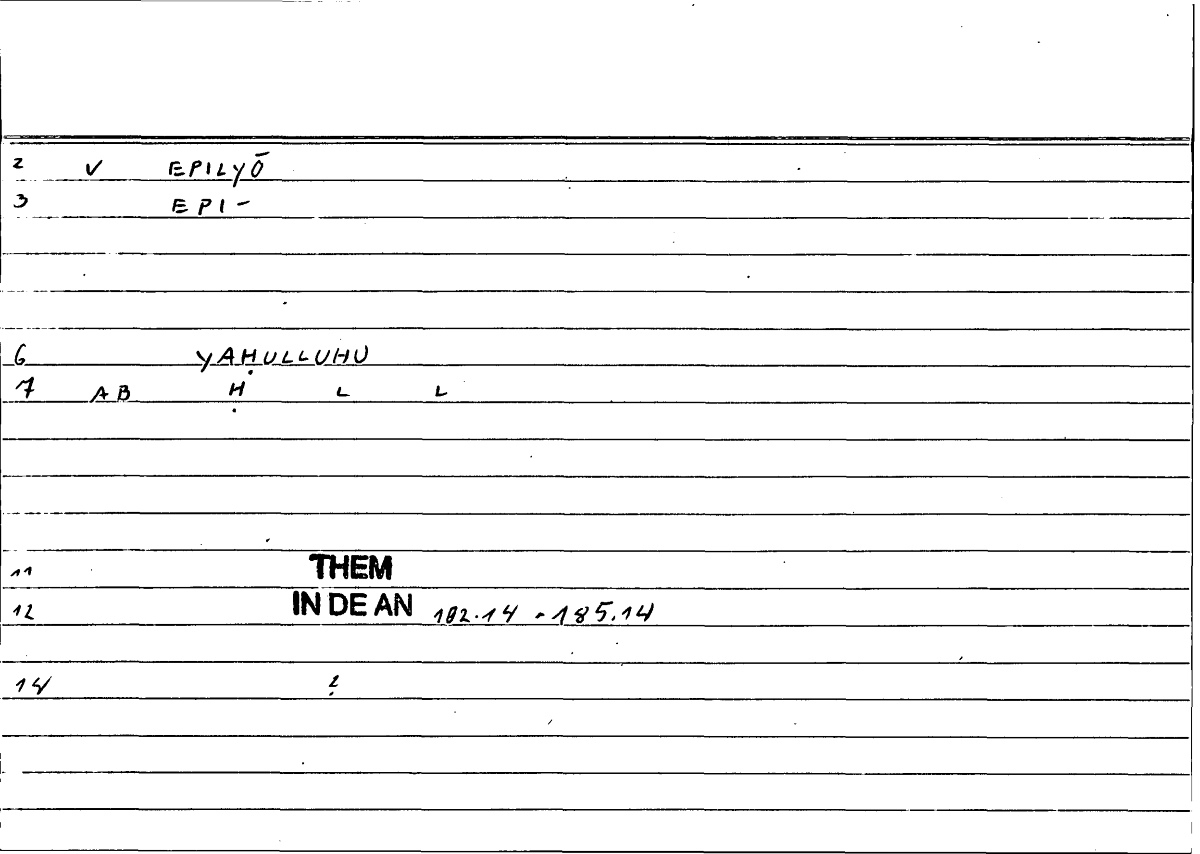 2 V EPILYŌ
3 EPI-
6 YAḤULLUHU
7 AB Ḥ L L
11 THEM
12 IN DE AN 182.14 - 185.14
14